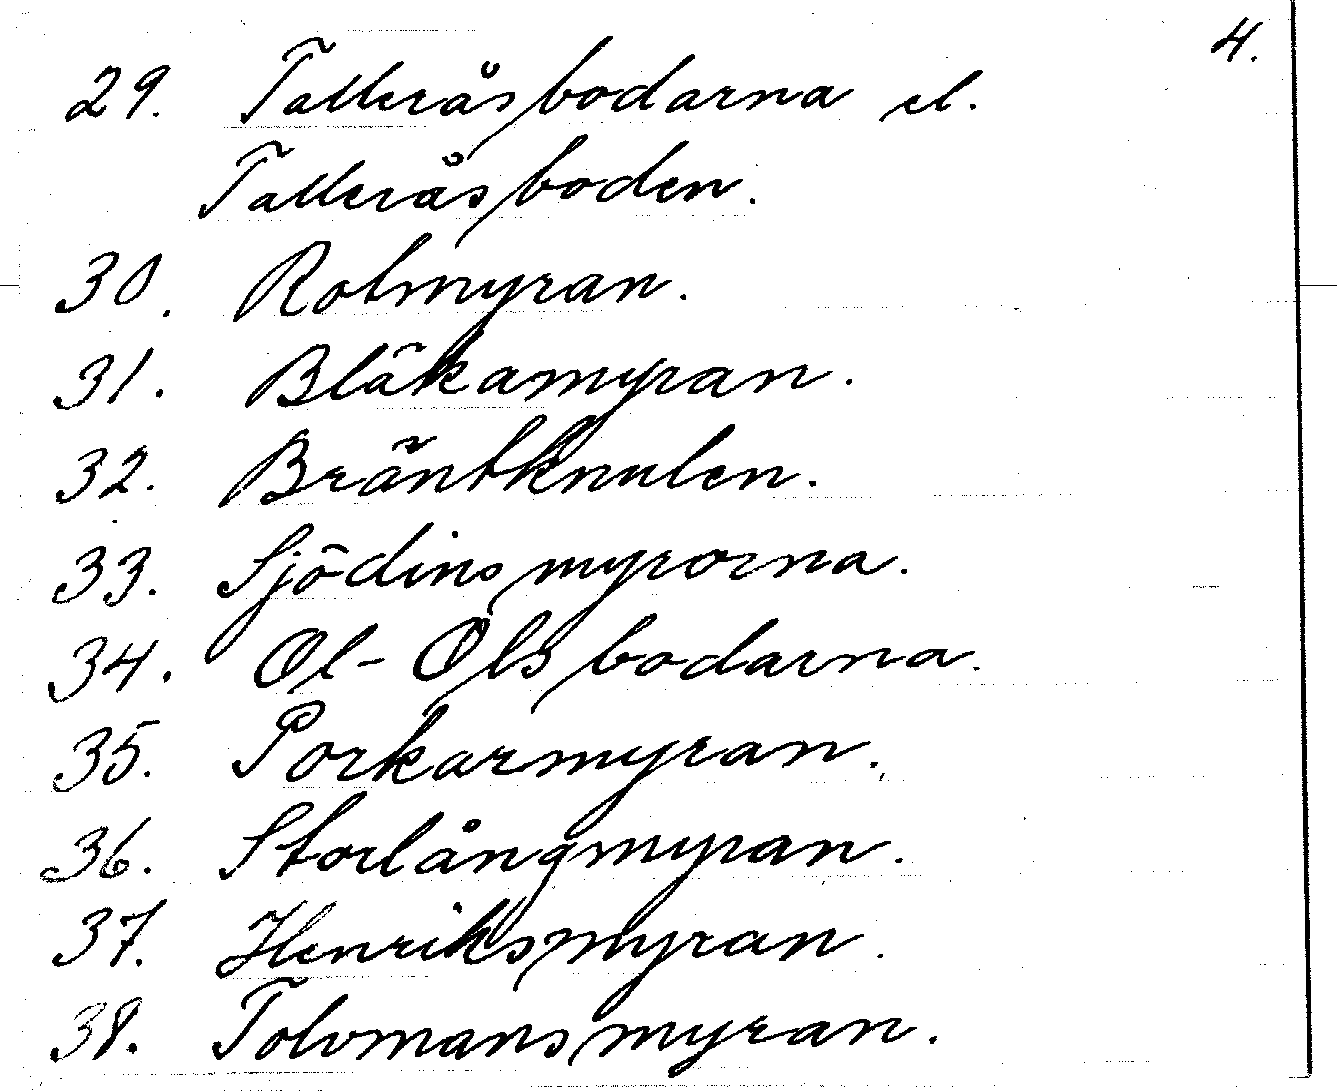 4.
29. Talleråsbodarna el.
Talleråsboden.
30. Rotmyran.
31. Bläkamyran.
32. Bräntknulen.
33. Sjödinsmyrorna.
34. Ol-Olsbodarna.
35. Porkarmyran.
36. Storlångmyran.
37. Henriksmyran.
38. Tolvmansmyran.